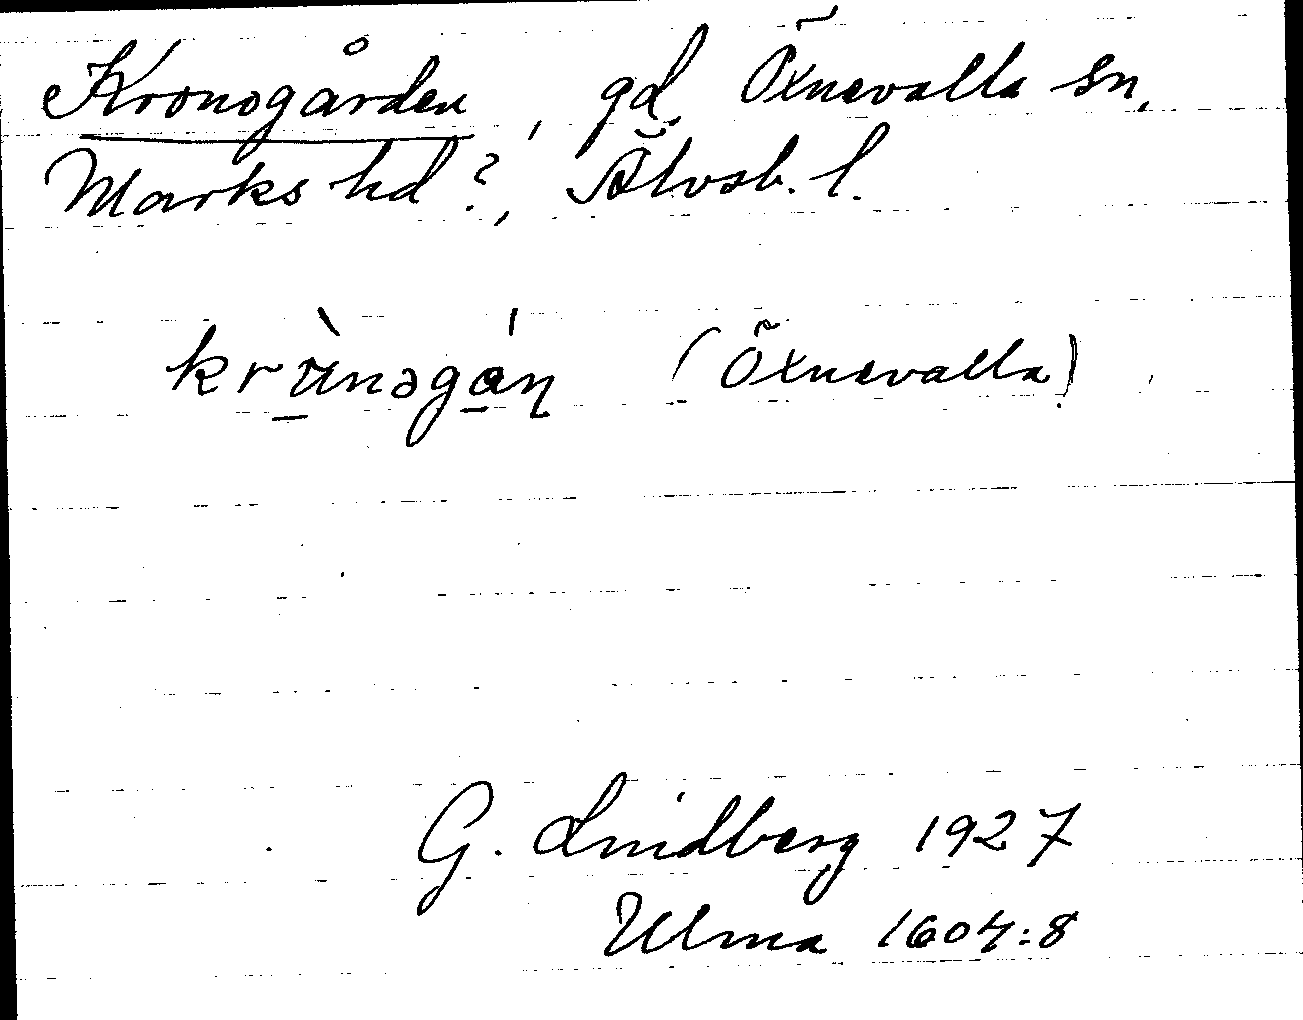 Kronogården, gd, Öxnevalla sn,
Marks hd?, Älvsb. l.
krùnəgán (Öxnevalla)
G. Lindberg 1927
Ulma 1604:8